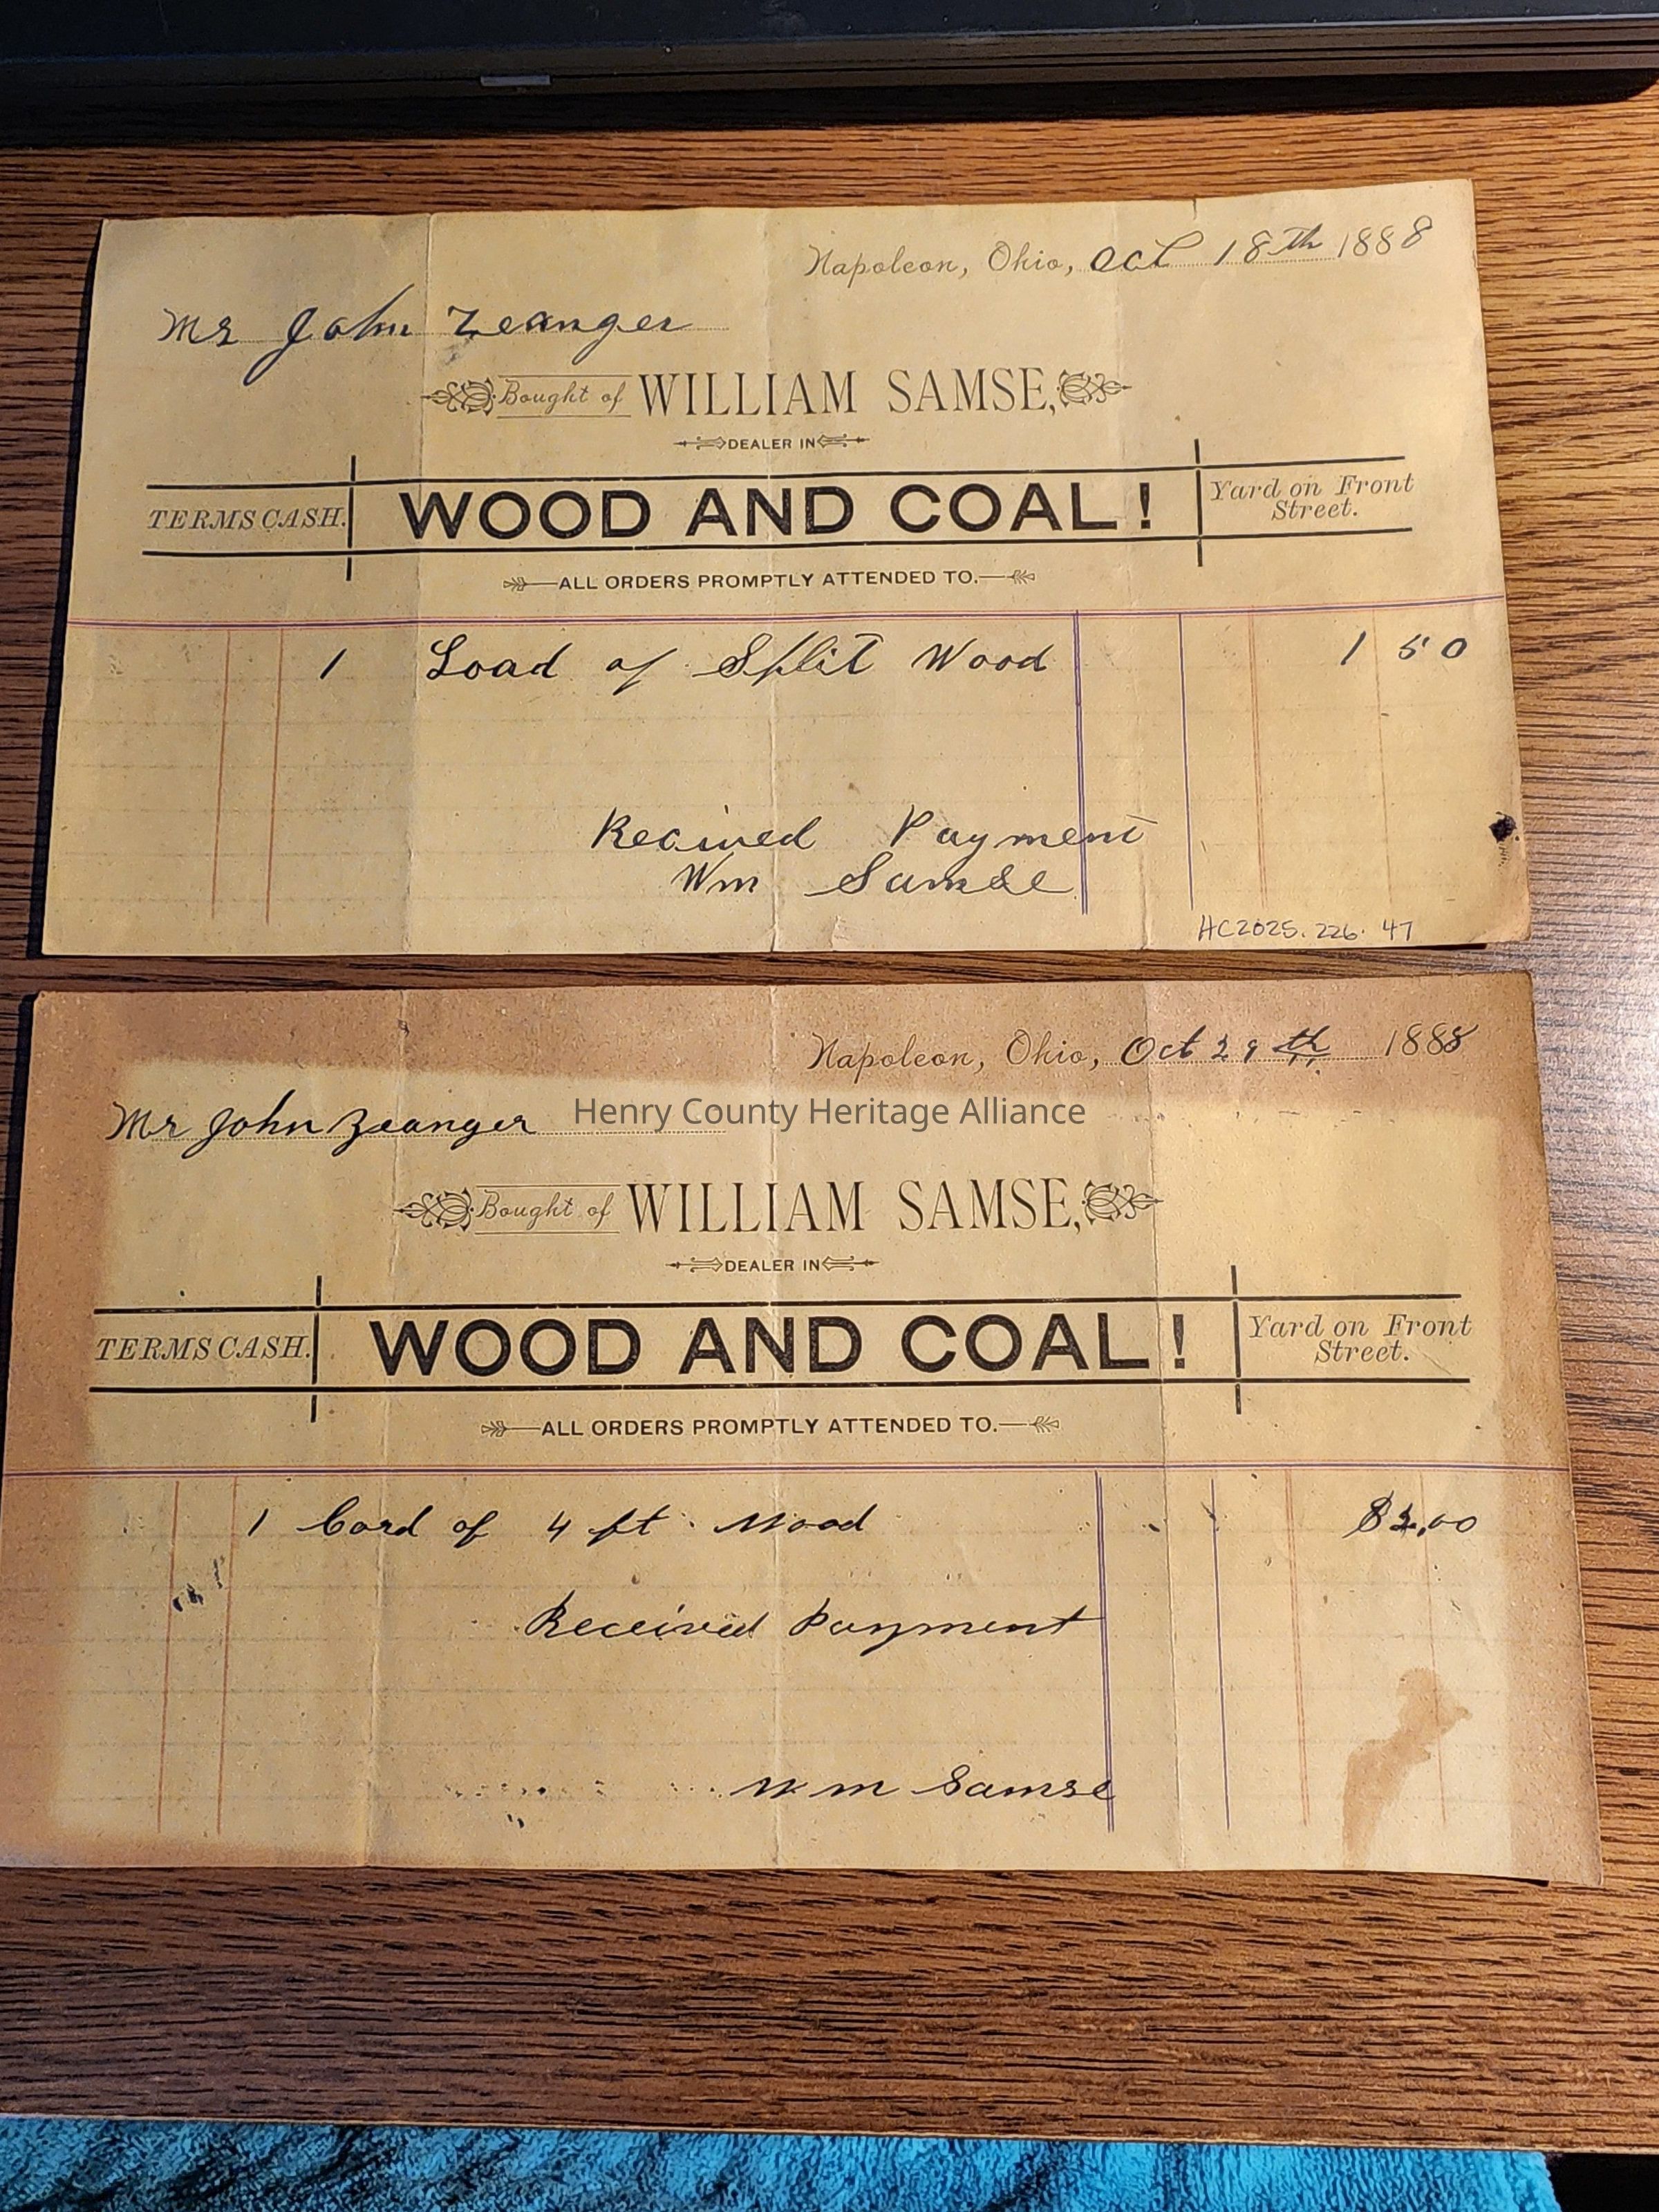 Napoleon, Ohio, Oct 18th 1888
Mr John Zeanger
Bought of WILLIAM SAMSE,
DEALER IN
TERMS CASH. WOOD AND COAL! Yard on Front Street.
ALL ORDERS PROMPTLY ATTENDED TO.
1 Load of Split Wood 1 50
Recived Payment
Wm Samse
HC2025.226.47
Napoleon, Ohio, Oct 29th 1888
Mr John Zeanger
Henry County Heritage Alliance
Bought of WILLIAM SAMSE,
DEALER IN
TERMS CASH. WOOD AND COAL! Yard on Front Street.
ALL ORDERS PROMPTLY ATTENDED TO.
1 Cord of 4 ft Wood
Received Payment
Wm Samse